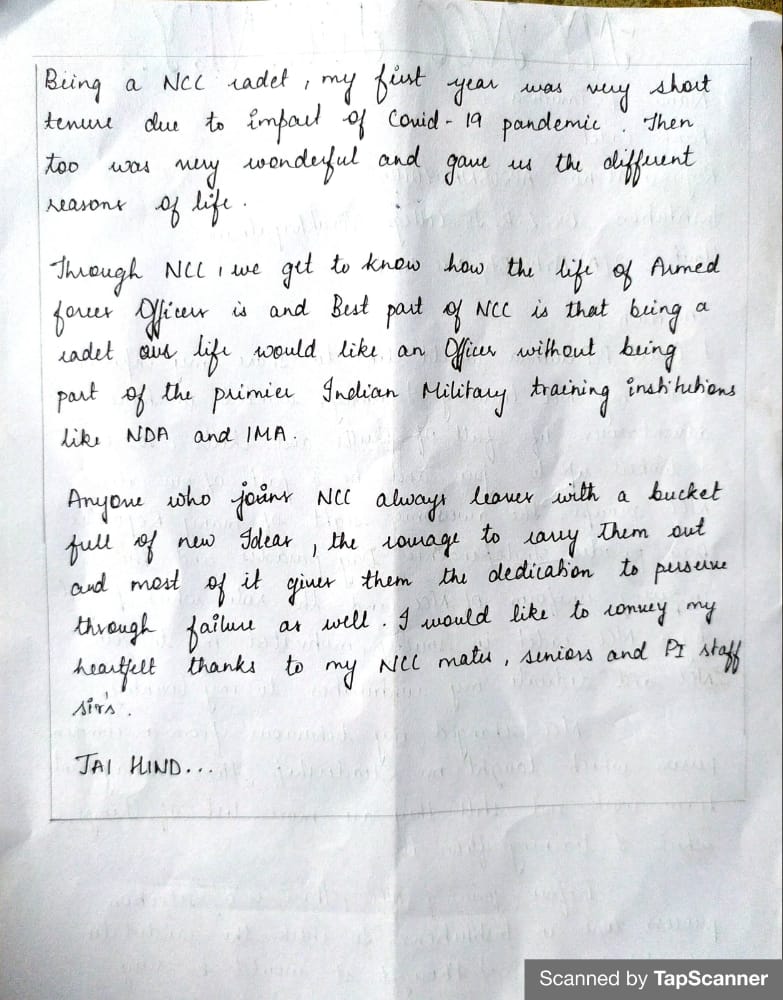 Being a NCC cadet, my first year was very short
tenure due to impact of Covid-19 pandemic. Then
too was very wonderful and gave us the different
reasons of life.
Through NCC, we get to know how the life of Armed
forces Officers is and Best part of NCC is that being a
cadet our life would like an Officer without being
part of the primier Indian Military training institutions
like NDA and IMA.
Anyone who joins NCC always leaves with a bucket
full of new Ideas, the courage to carry them out
and most of it gives them the dedication to perserve
through failure as well. I would like to convey my
heartfelt thanks to my NCC mates, seniors and PI staff
sir's.
JAI HIND...
Scanned by TapScanner